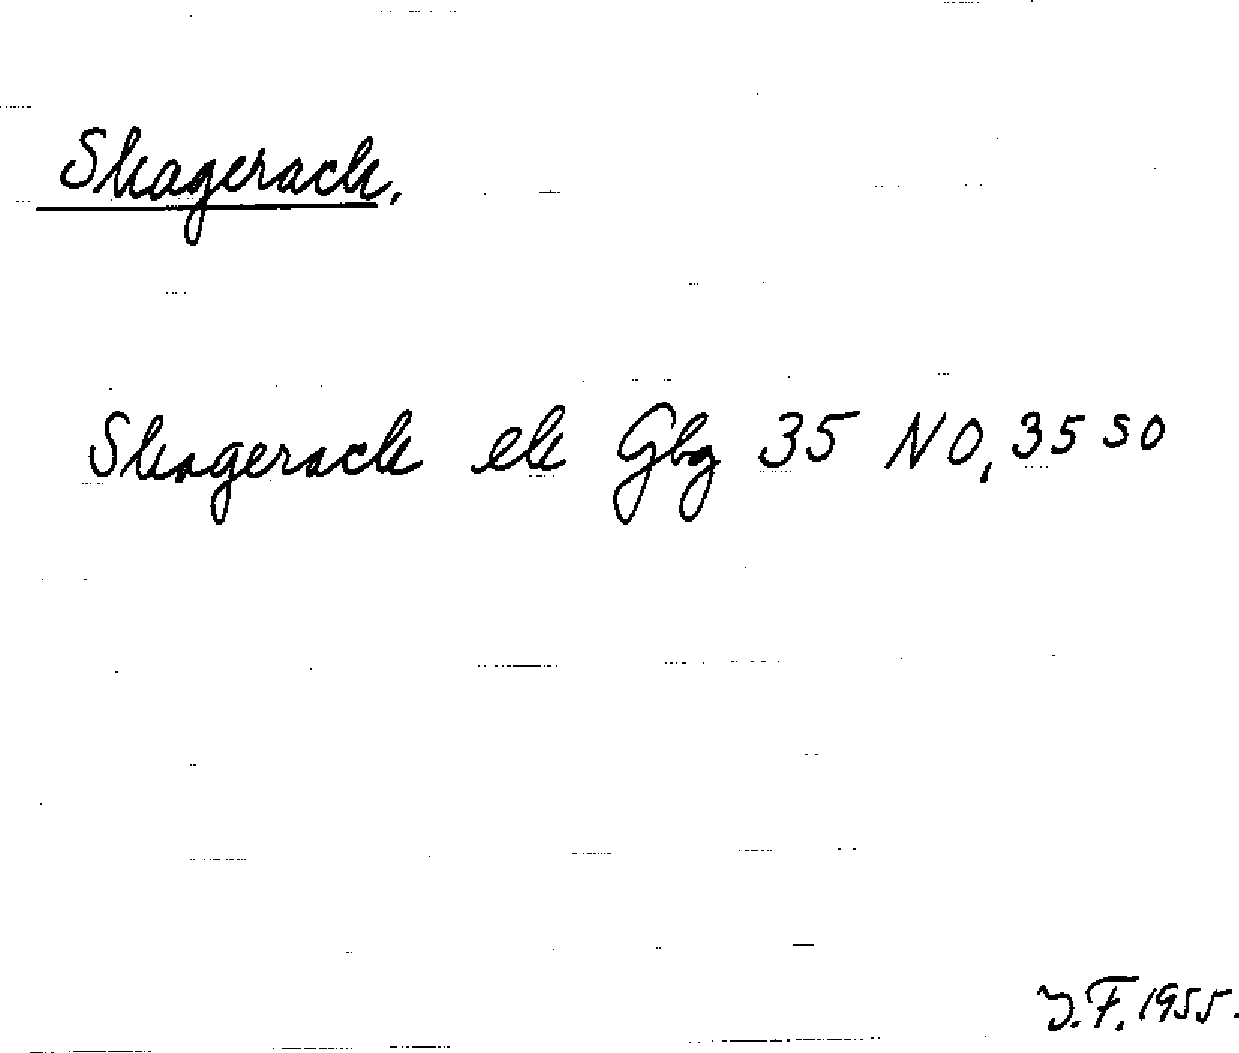 Skagerack,
Skagerack ek Gbg 35 NO, 35 SO
J.F. 1955.